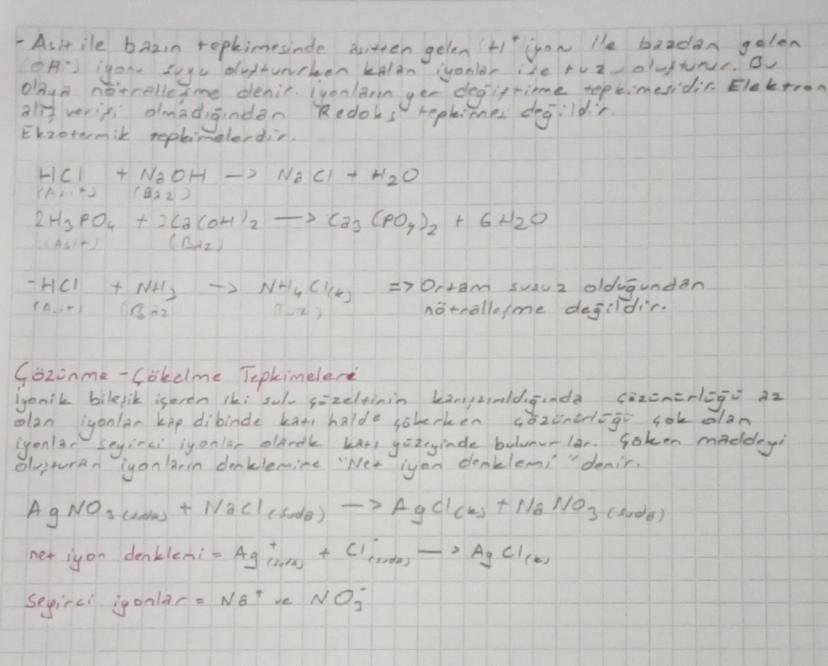 - Asit ile bazın tepkimesinde asitten gelen (H⁺ iyon ile bazdan gelen
(OH⁻) iyonu suyu oluştururken kalan iyonlar ise tuz oluşturur. Bu
olaya nötralleşme denir. iyonların yer değiştirme tepkimesidir. Elektron
alış verişi olmadığından Redoks tepkimesi değildir.
Ekzotermik tepkimelerdir.
HCl + NaOH —> NaCl + H₂O
(Asit) (Baz)
2H₃PO₄ + 3Ca(OH)₂ —> Ca₃(PO₄)₂ + 6H₂O
(Asit) (Baz)
-HCl + NH₃ —> NH₄Cl(k) => Ortam susuz olduğundan
(Asit) (Baz (Tuz) nötralleşme değildir.
Çözünme - Çökelme Tepkimeleri
iyonik bileşik içeren iki sulu çözeltinin karıştırıldığında çözünürlüğü az
olan iyonlar kap dibinde katı halde çökerken çözünürlüğü çok olan
iyonlar seyirci iyonlar olarak bulunurlar. Çöken maddeyi
oluşturan iyonların denklemine "Net iyon denklemi" denir.
AgNO₃(suda) + NaCl(suda) —> AgCl(k) + NaNO₃(suda)
net iyon denklemi = Ag⁺(suda) + Cl⁻(suda) —> AgCl(k)
Seyirci iyonlar = Na⁺ ve NO₃⁻